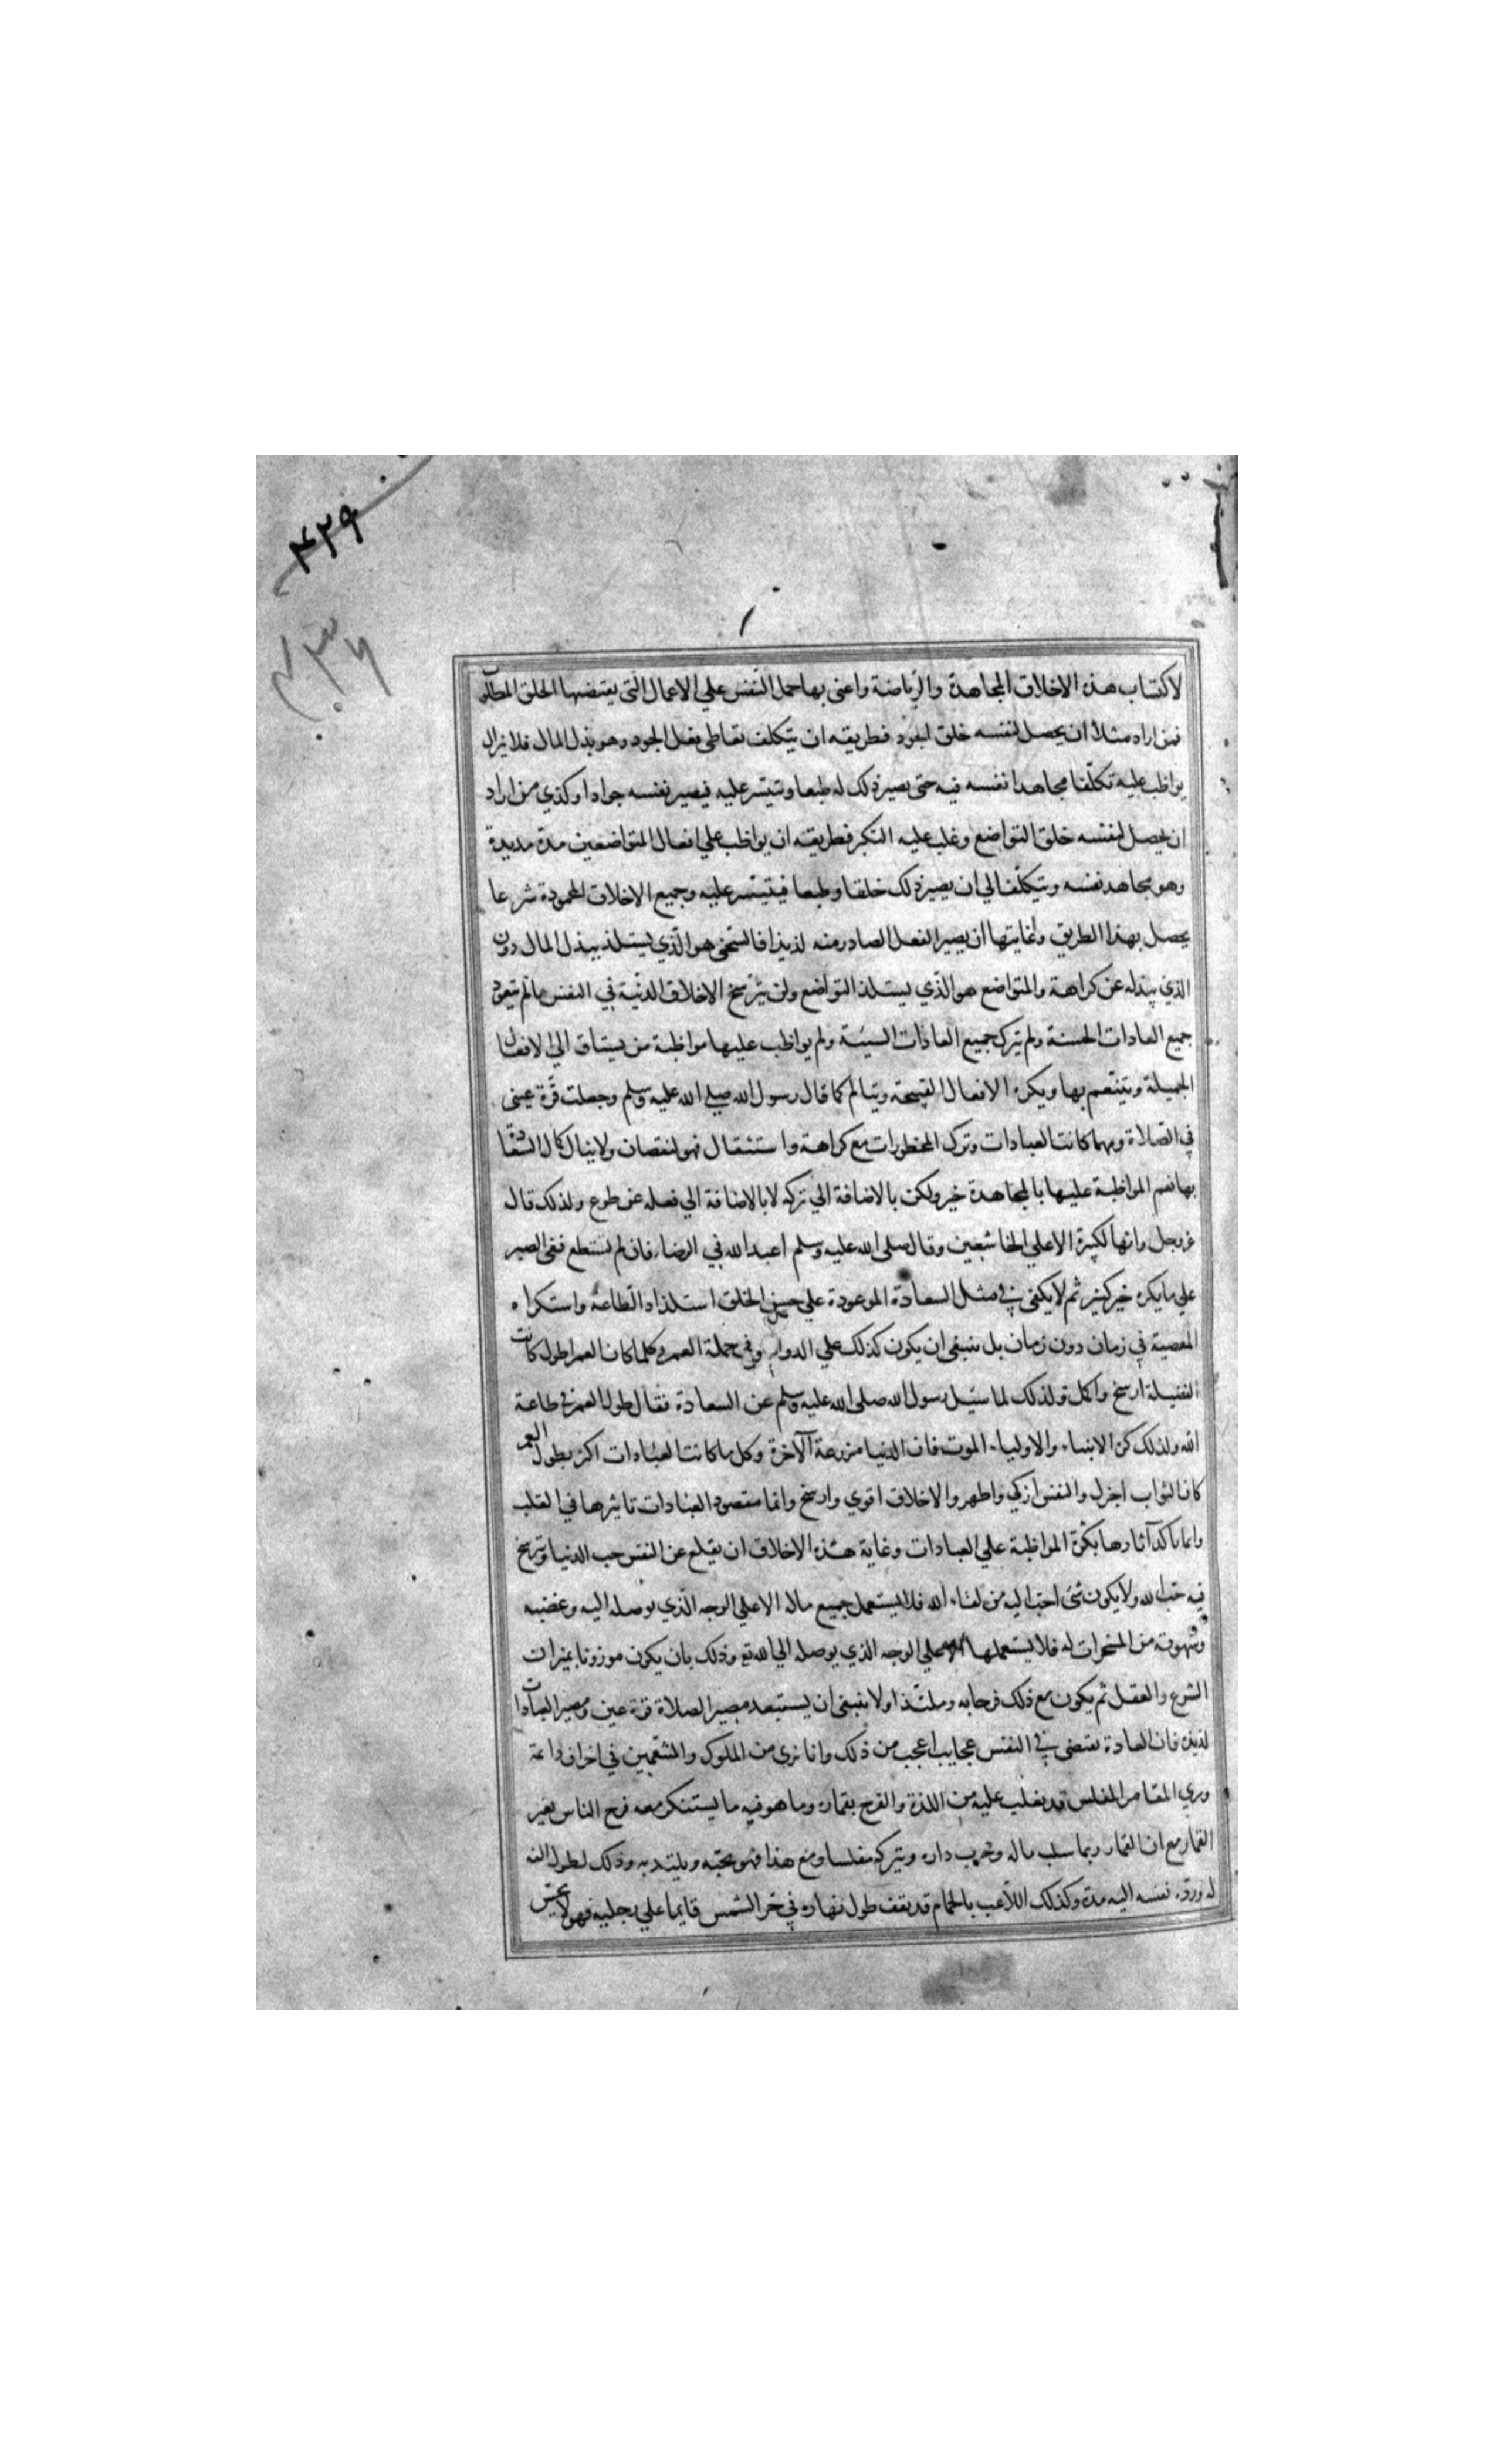 ۴۲۹
۷۳۶
لاكتساب هذه الاخلاق المجاهدة والرياضة واعنى بها حمل النفس علي الاعمال التى يقتضيها الخلق المطلوب
فمن اراد مثلا ان يحصل لنفسه خلق الجود فطريقه ان يتكلف تعاطى فعل الجود وهو بذل المال فلا يزال
يواظب عليه تكلّفا مجاهدا نفسه فيه حتى يصير ذلك له طبعا ويتيسر عليه فيصير نفسه جوادا وكذي من اراد
ان يحصل لنفسه خلق التواضع وغلب عليه التكبر فطريقه ان يواظب علي افعال المتواضعين مدة مديدة
وهو يجاهد نفسه ويتكلّف الي ان يصير ذلك خلقا وطبعا فيتيسر عليه وجميع الاخلاق المحمودة شرعا
يحصل بهذا الطريق وغايتها ان يصير الفعل الصادر منه لذيذا فالسّخى هو الّذي يستلذ ببذل المال دون
الذي يبذله عن كراهة والمتواضع هو الّذي يستلذ التواضع ولن يترسخ الاخلاق الدنية في النفس ما لم يتعود
جميع العادات الحسنة ولم يترك جميع العادات السيئة ولم يواظب عليها مواظبة من يشتاق الي الافعال
الجميلة ويتنعّم بها ويكره الافعال القبيحة ويتالم كما قال رسول الله صلي الله عليه وسلم وجعلت قرّة عينى
في الصّلاة ومهما كانت العبادات وترك المحظورات مع كراهة واستثقال فهو لنقصان ولا ينال كمال السعادة
بها نعم المواظبة عليها بالمجاهدة خير ولكن بالاضافة الي تركه لا بالاضافة الي فعله عن طوع ولذلك قال
عز وجل وانها لكبيرة الا علي الخاشعين وقال صلى الله عليه وسلم اعبد الله في الرضاء فان لم تستطع ففى الصبر
علي ما يكره خير كثير ثم لا يكفى في مثل السعادة الموعودة علي حسن الخلق استلذاذ الطاعة واستكراه
المعصية في زمان دون زمان بل ينبغى ان يكون كذلك علي الدوام وفي جملة العمر وكلما كان العمر اطول كانت
الفضيلة ارسخ واكمل ولذلك لما سئيل رسول الله صلى الله عليه وسلم عن السعادة فقال طول العمر في طاعة
الله ولذلك كره الانبياء والاولياء الموت فان الدنيا مزرعة الآخرة وكل ما كانت العبادات اكثر بطول العمر
كان الثواب اجزل والنفس ازكي واطهر والاخلاق اقوي وارسخ وانما مقصود العبادات تاثيرها في القلب
وانما تاكد آثارها بكثرة المواظبة علي العبادات وغاية هذه الاخلاق ان يقلع عن النفس حب الدنيا ويترسخ
فيه حبّ الله ولا يكون شئ احبّ اليه من لقاء الله فلا يستعمل جميع ماله الا علي الوجه الّذي يوصله اليه وغضبه
وشهوته من المسخرات له فلا يستعملها الا علي الوجه الذي يوصله الي الله تع وذلك بان يكون موزونا بميزان
الشرع والعقل ثم يكون مع ذلك فرحا به وملتذا ولا ينبغى ان يستبعد مصير الصلاة قرة عين ومصير العبادات
لذيذه فان العادة تقتضى في النفس عجايب اعجب من ذلك وانا نرى من الملوك والمنتعّمين في احزان دائمة
ونري المقامر المفلس قد يغلب عليه من اللذة والفرح بقماره وما هو فيه ما يستنكر معه فرح الناس بغير
القمار مع ان القمار ربما سلب ماله وخرب داره وتركه مفلسا ومع هذا فهو يحبّه ويلتذ به وذلك لطول الفه
له وردّه نفسه اليه مدة وكذلك اللاّعب بالحمام قد يقف طول نهاره في حرّ الشمس قايما علي رجليه فهو لا يحسّ